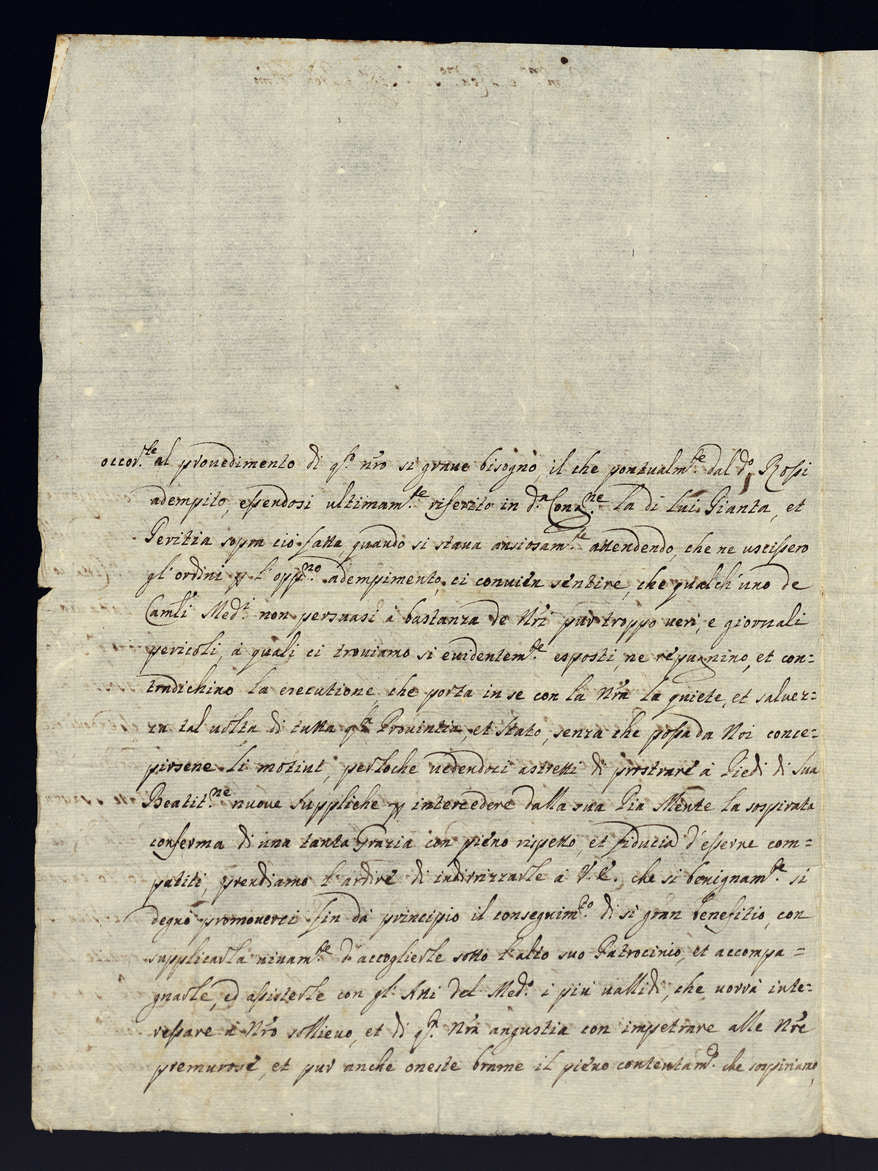 occor.te al prouedimento di q.to nro si graue bisogno il che pontualm.te dal d.o Rossi
adempito, essendosi ultimam.te riferito in d.a Cong.ne la di lui Pianta, et
Peritia sopra ciò fatta, quando si staua ansiosam.te attendendo, che ne uscissero
gl'ordini p l'opp.no adempimento, ci conuien sentire, che qualch'uno de
Med.i non persuasi à bastanza de Nri pur troppo ueri, e giornali
pericoli, à quali ci trouiamo si euidentem.te esposti, ne repugnino, et con=
tradichino la esecutione che porta in se con la Nra la quiete, et saluez=
za tal uolta di tutta q.ta Prouintia et Stato, senza che possa da Noi conce=
pirsene li motiui, perloche uedendoci astretti di prostrare à Piedi di Sua
Beatit.ne nuoue suppliche p intercedere dalla sua Pia Mente la sospirata
conferma di una tanta Grazia con pieno rispetto, et fiducia d'esserne com=
patiti, prendiamo l'ardire di indirizzarle à V.E. che si benignam.te si
degnò promouerci fin da principio il conseguim.to di si gran benefitio, con
supplicarla uiuam.te d'accoglierle sotto l'alto suo Patrocinio, et accompa=
gnarle, ed assisterle con gl'Atti del Med.o i più uallidi, che uorrà inte=
ressare à Nro sollieuo, et di q.ta Nra angustia con impetrare alle Nre
premurose, et pur anche oneste brame il pieno contentam.to che sospiriamo,